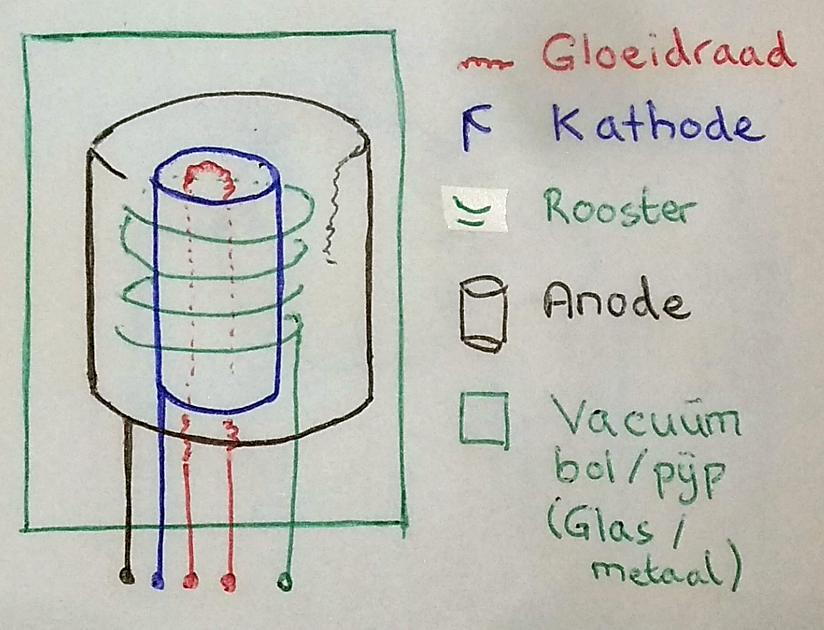 Gloeidraad
Kathode
Rooster
Anode
Vacuüm
bol/pijp
(Glas/
metaal)